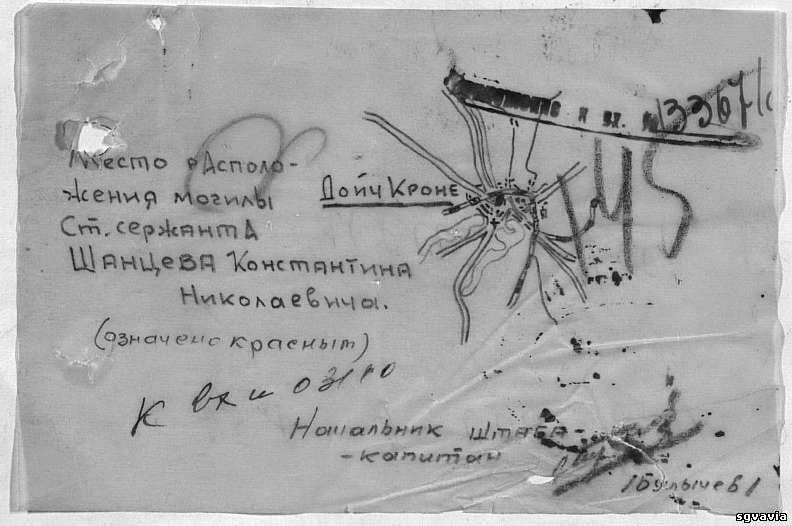 Место располо-
жения могилы
Ст. сержанта
Шанцева Константина
Николаевича.
(означено красным)
Дойч Кроне
к вх. №
13367/с
145
К вх № 03110
Начальник штаба-
-капитан
/Булычев/
sgvavia